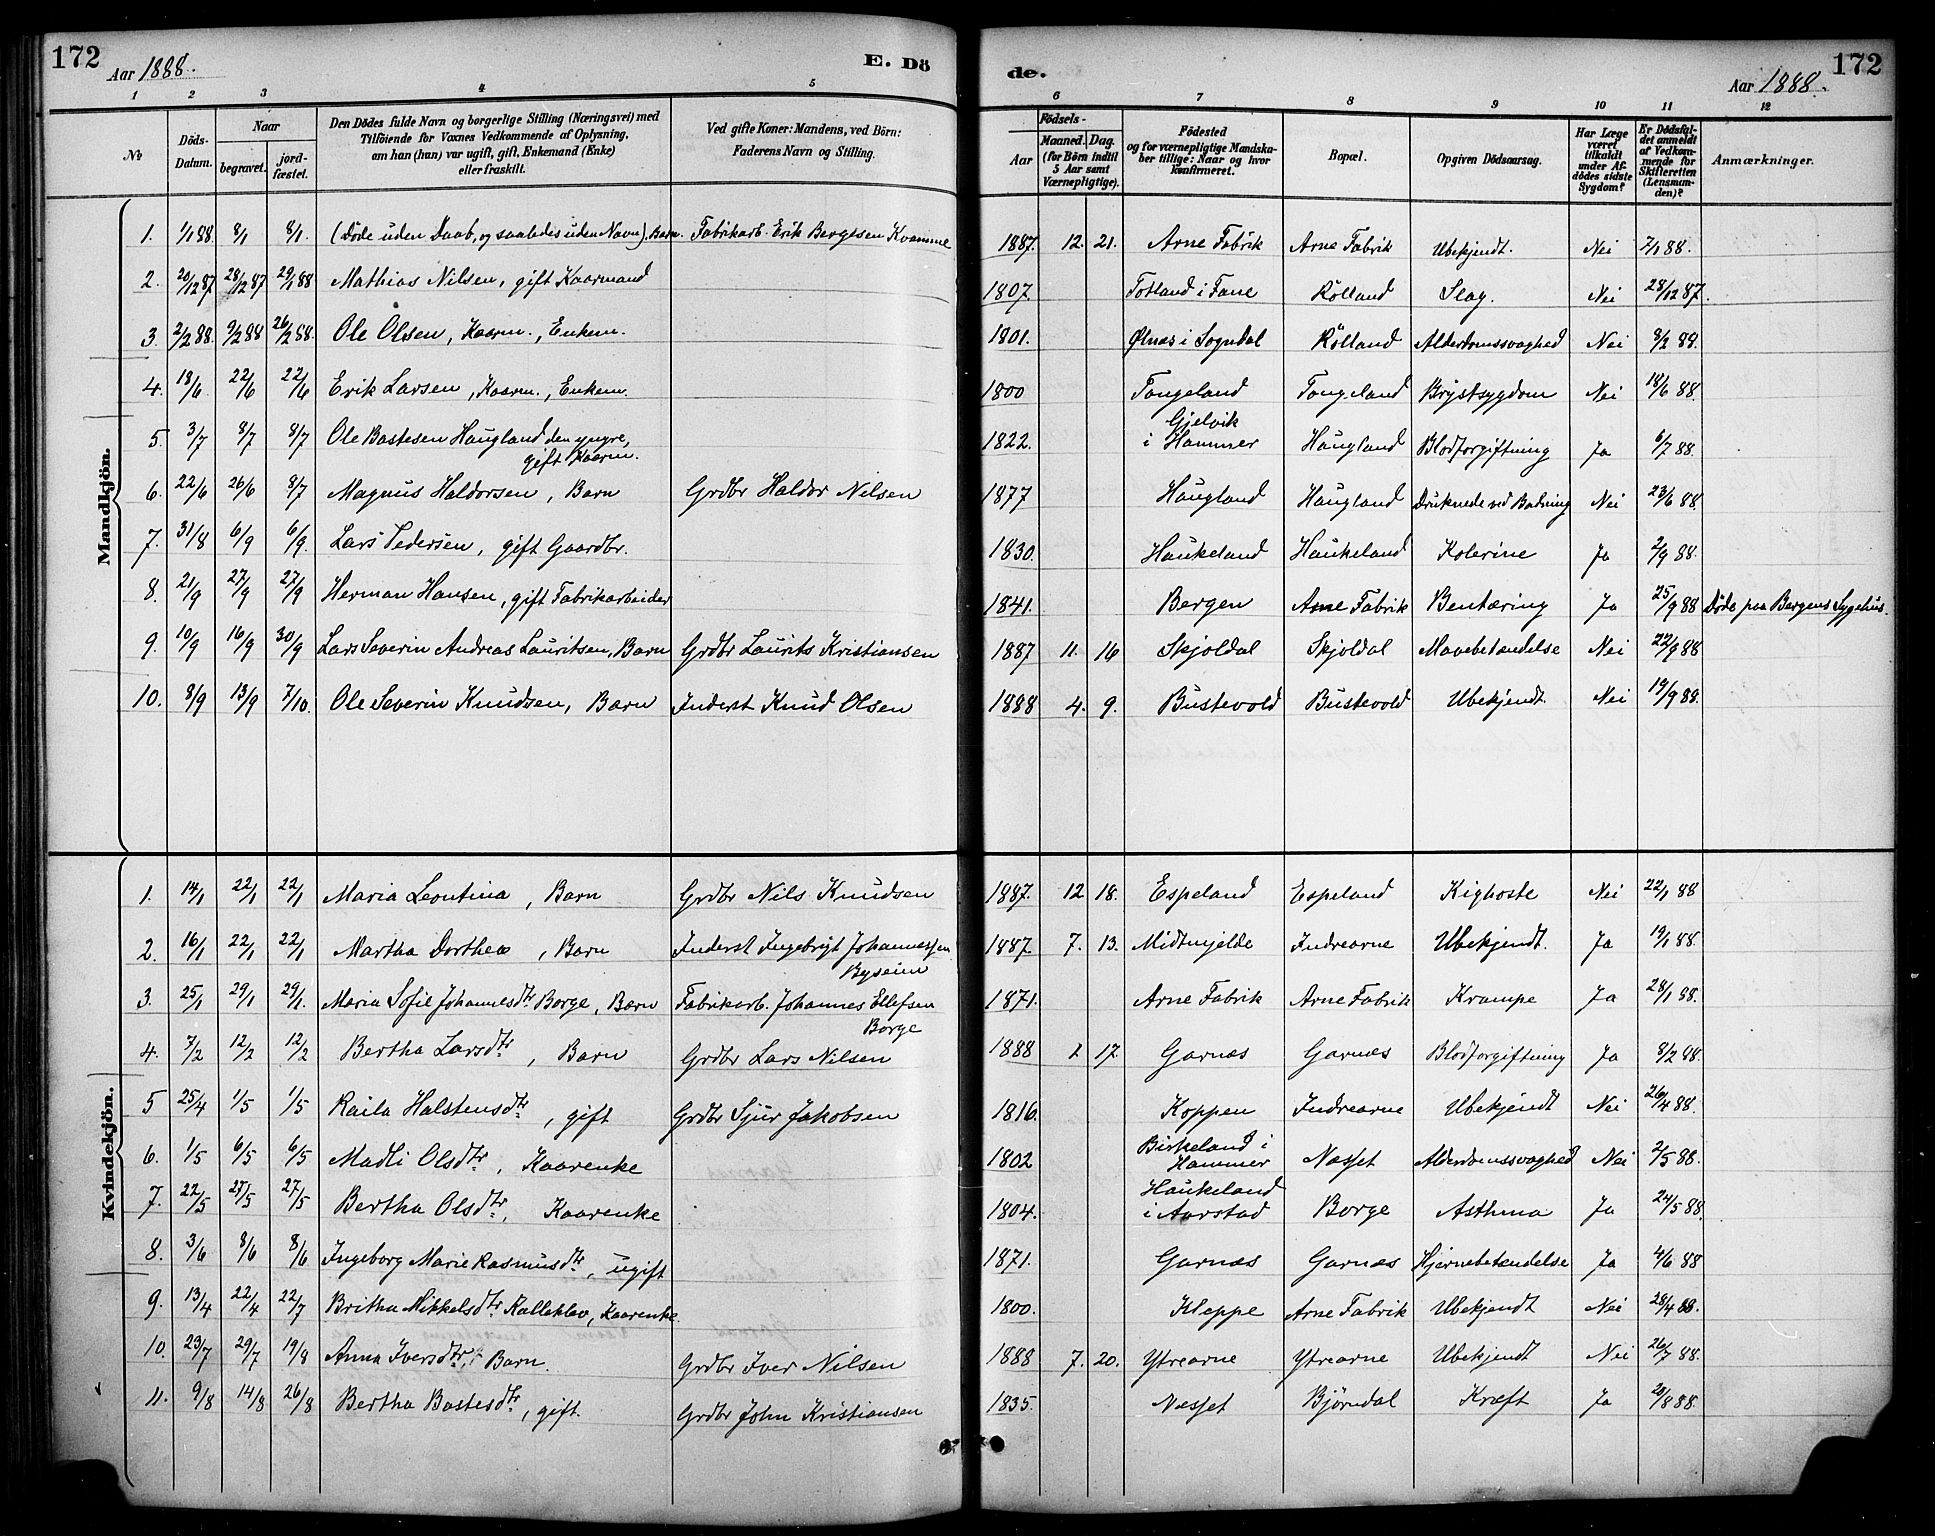 172
Aar 1888.
E. Dö
de.
Aar 1888.
172
1 2 3 4 5 6 7 8 9 10 11 12
No
Döds-Datum.
Naar
begravet.
jord-fæstet.
Den Dödes fulde Navn og borgerlige Stilling (Næringsvei) med
Tilföiende for Voxnes Vedkommende af Oplysning,
om han (hun) var ugift, gift, Enkemand (Enke)
eller fraskilt.
Ved gifte Koner: Mandens, ved Börn:
Faderens Navn og Stilling.
Födsels-
Aar
Maaned. Dag.
(for Börn indtil
5 Aar samt
Værnepligtige).
Födested
og for værnepligtige Mandska-
ber tillige: Naar og hvor
konfirmeret.
Bopæl.
Opgiven Dödsaarsag.
Har Læge
været
tilkaldt
under Af-
dödes sidste
Sygdom?
Er Dödsfal-
det anmeldt
af Vedkom-
mende for
Skifteretten
(Lensman-
den)?
Anmærkninger.
Mandkjön.
1. 1/1 88. 8/1 8/1. (Døde uden Daab, og saaledes uden Navn). Barn. Fabrikarb. Erik Bergesen Kvamme 1887. 12. 21. Arne Fabrik Arne Fabrik Ubekjendt. Nei 7/1 88.
2. 20/12 87 28/12 87 29/1 88 Mathias Nilsen, gift Kaarmand 1807. Totland i Fane Rölland Slag. Nei 28/12 87.
3. 2/2 88. 9/2 88 26/2 88. Ole Olsen, Kaarm., Enkem. 1801. Ølnæs i Sogndal Rölland Alderdomssvaghed Nei 8/2 88.
4. 18/6 22/6 22/6 Erik Larsen, Kaarm., Enkem. 1800 Tangeland Tangeland Brystsygdom Nei 18/6 88.
5. 3/7 8/7 8/7 Ole Bastesen Haugland den yngre,
gift Kaarm. 1822. Gjelvik
i Hammer Haugland Blodforgiftning Ja 6/7 88.
6. 22/6 26/6 8/7 Magnus Haldorsen, Barn Grdbr Haldor Nilsen 1877 Haugland Haugland Druknede ved Badning Nei 23/6 88.
7. 31/8 6/9 6/9. Lars Pedersen, gift Gaardbr. 1830. Haukeland Haukeland Kolerine Ja 2/9 88.
8. 21/9 27/9 27/9 Herman Hansen, gift Fabrikarbeider 1841. Bergen Arne Fabrik Bentæring Ja 25/9 88 Døde paa Bergens Sygehus.
9. 10/9 16/9 30/9 Lars Severin Andreas Lauritsen, Barn Grdbr Laurits Kristiansen 1887 11. 16 Skjoldal Skjoldal Mavebetændelse Nei 22/9 88
10. 8/9 13/9 7/10. Ole Severin Knudsen, Barn Inderst Knud Olsen 1888 4. 9. Bustevold Bustevold Ubekjendt. Nei 19/9 88.
Kvindekjön.
1. 14/1 22/1 22/1 Maria Leontina, Barn Grdbr Nils Knudsen 1887. 12 18. Espeland Espeland Kighoste Nei 22/1 88
2. 16/1 22/1 22/1 Martha Dorthea, Barn Inderst Ingebrigt Johannessen
Byseim 1887. 7. 13. Midtmjelde Indrearne Ubekjendt. Ja 19/1 88.
3. 25/1 29/1 29/1. Maria Sofie Johannesdtr. Borge, Barn Fabrikarb. Johannes Ellefsen
Borge 1871. Arne Fabrik Arne Fabrik Krampe Ja 28/1 88.
4. 7/2 12/2 12/2 Bertha Larsdtr., Barn Grdbr Lars Nilsen 1888 1 17. Garnæs Garnæs Blodforgiftning Ja 8/2 88.
5 25/4 1/5 1/5 Raila Halstensdtr., gift Grdbr Sjur Jakobsen 1816. Koppen Indrearne Ubekjendt Nei 26/4 88.
6. 1/5 6/5 6/5 Madli Olsdtr., Kaarenke 1802 Birkeland i
Hammer Næsset Alderdomssvaghed Nei 2/5 88.
7. 22/5 27/5 27/5 Bertha Olsdtr., Kaarenke 1804. Haukeland
i Aarstad Borge Asthma Ja 24/5 88.
8. 3/6 8/6 8/6 Ingeborg Marie Rasmusdtr., ugift 1871. Garnæs Garnæs Hjernebetændelse Ja 4/6 88
9. 13/4 22/4 22/7 Britha Mikkelsdtr. Kalleklev, Kaarenke. 1800. Kleppe Arne Fabrik Ubekjendt Nei 28/4 88.
10. 23/7 29/7 19/8 Anna Iversdtr., Barn. Grdbr Iver Nilsen 1888 7. 20. Ytrearne Ytrearne Ubekjendt Nei 26/7 88.
11. 9/8 14/8 26/8 Bertha Bastesdtr., gift. Grdbr John Kristiansen 1835. Næsset Bjørndal Kræft Ja 20/8 88.